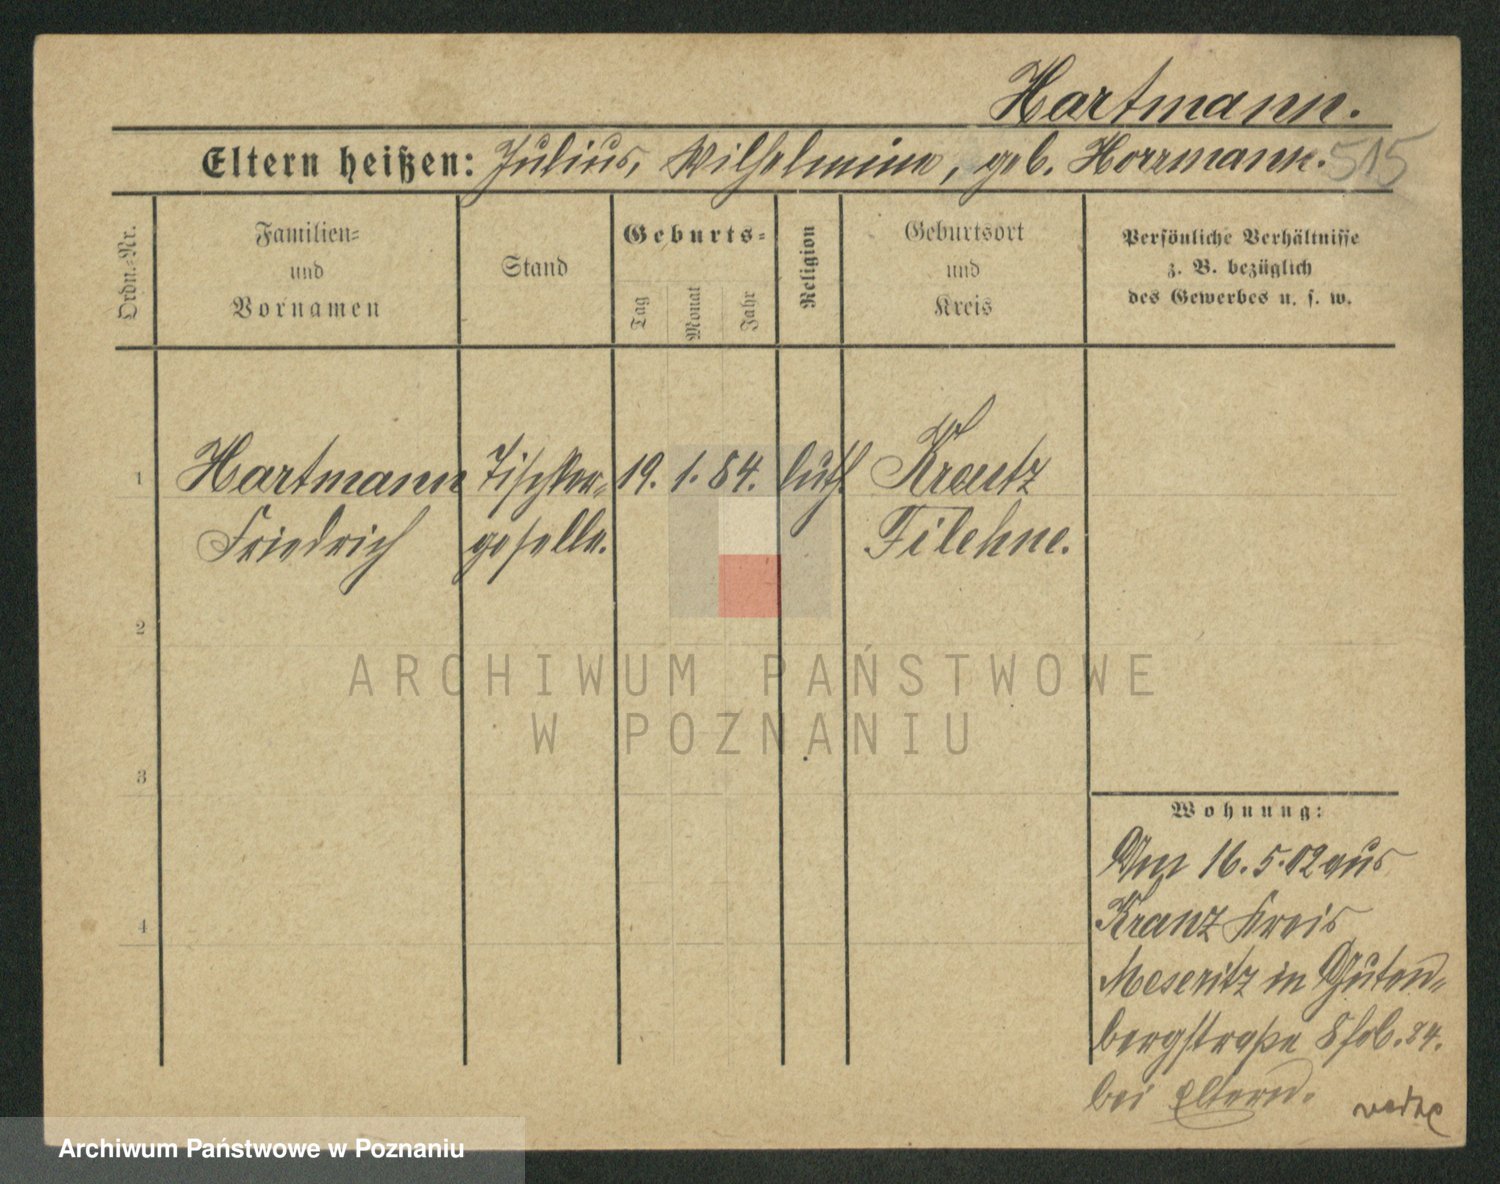 Hartmann.
Eltern heißen: Julius, Wilhelmine, geb. Horrmann. 515
Ordn.-Nr.
Familien-
und
Vornamen
Stand
Geburts-
Tag
Monat
Jahr
Religion
Geburtsort
und
Kreis
Persönliche Verhältnisse
z. B. bezüglich
des Gewerbes u. s. w.
1 Hartmann Tischler- 19. 1. 84. luth. Kreutz
Friedrich geselle. Filehne.
2
ARCHIWUM PAŃSTWOWE
W POZNANIU
3
Wohnung:
Am 16. 5. 02 aus
Kranz Kreis
Meseritz in Guten-
4
bergstraße 8
bei Eltern.
Archiwum Państwowe w Poznaniu